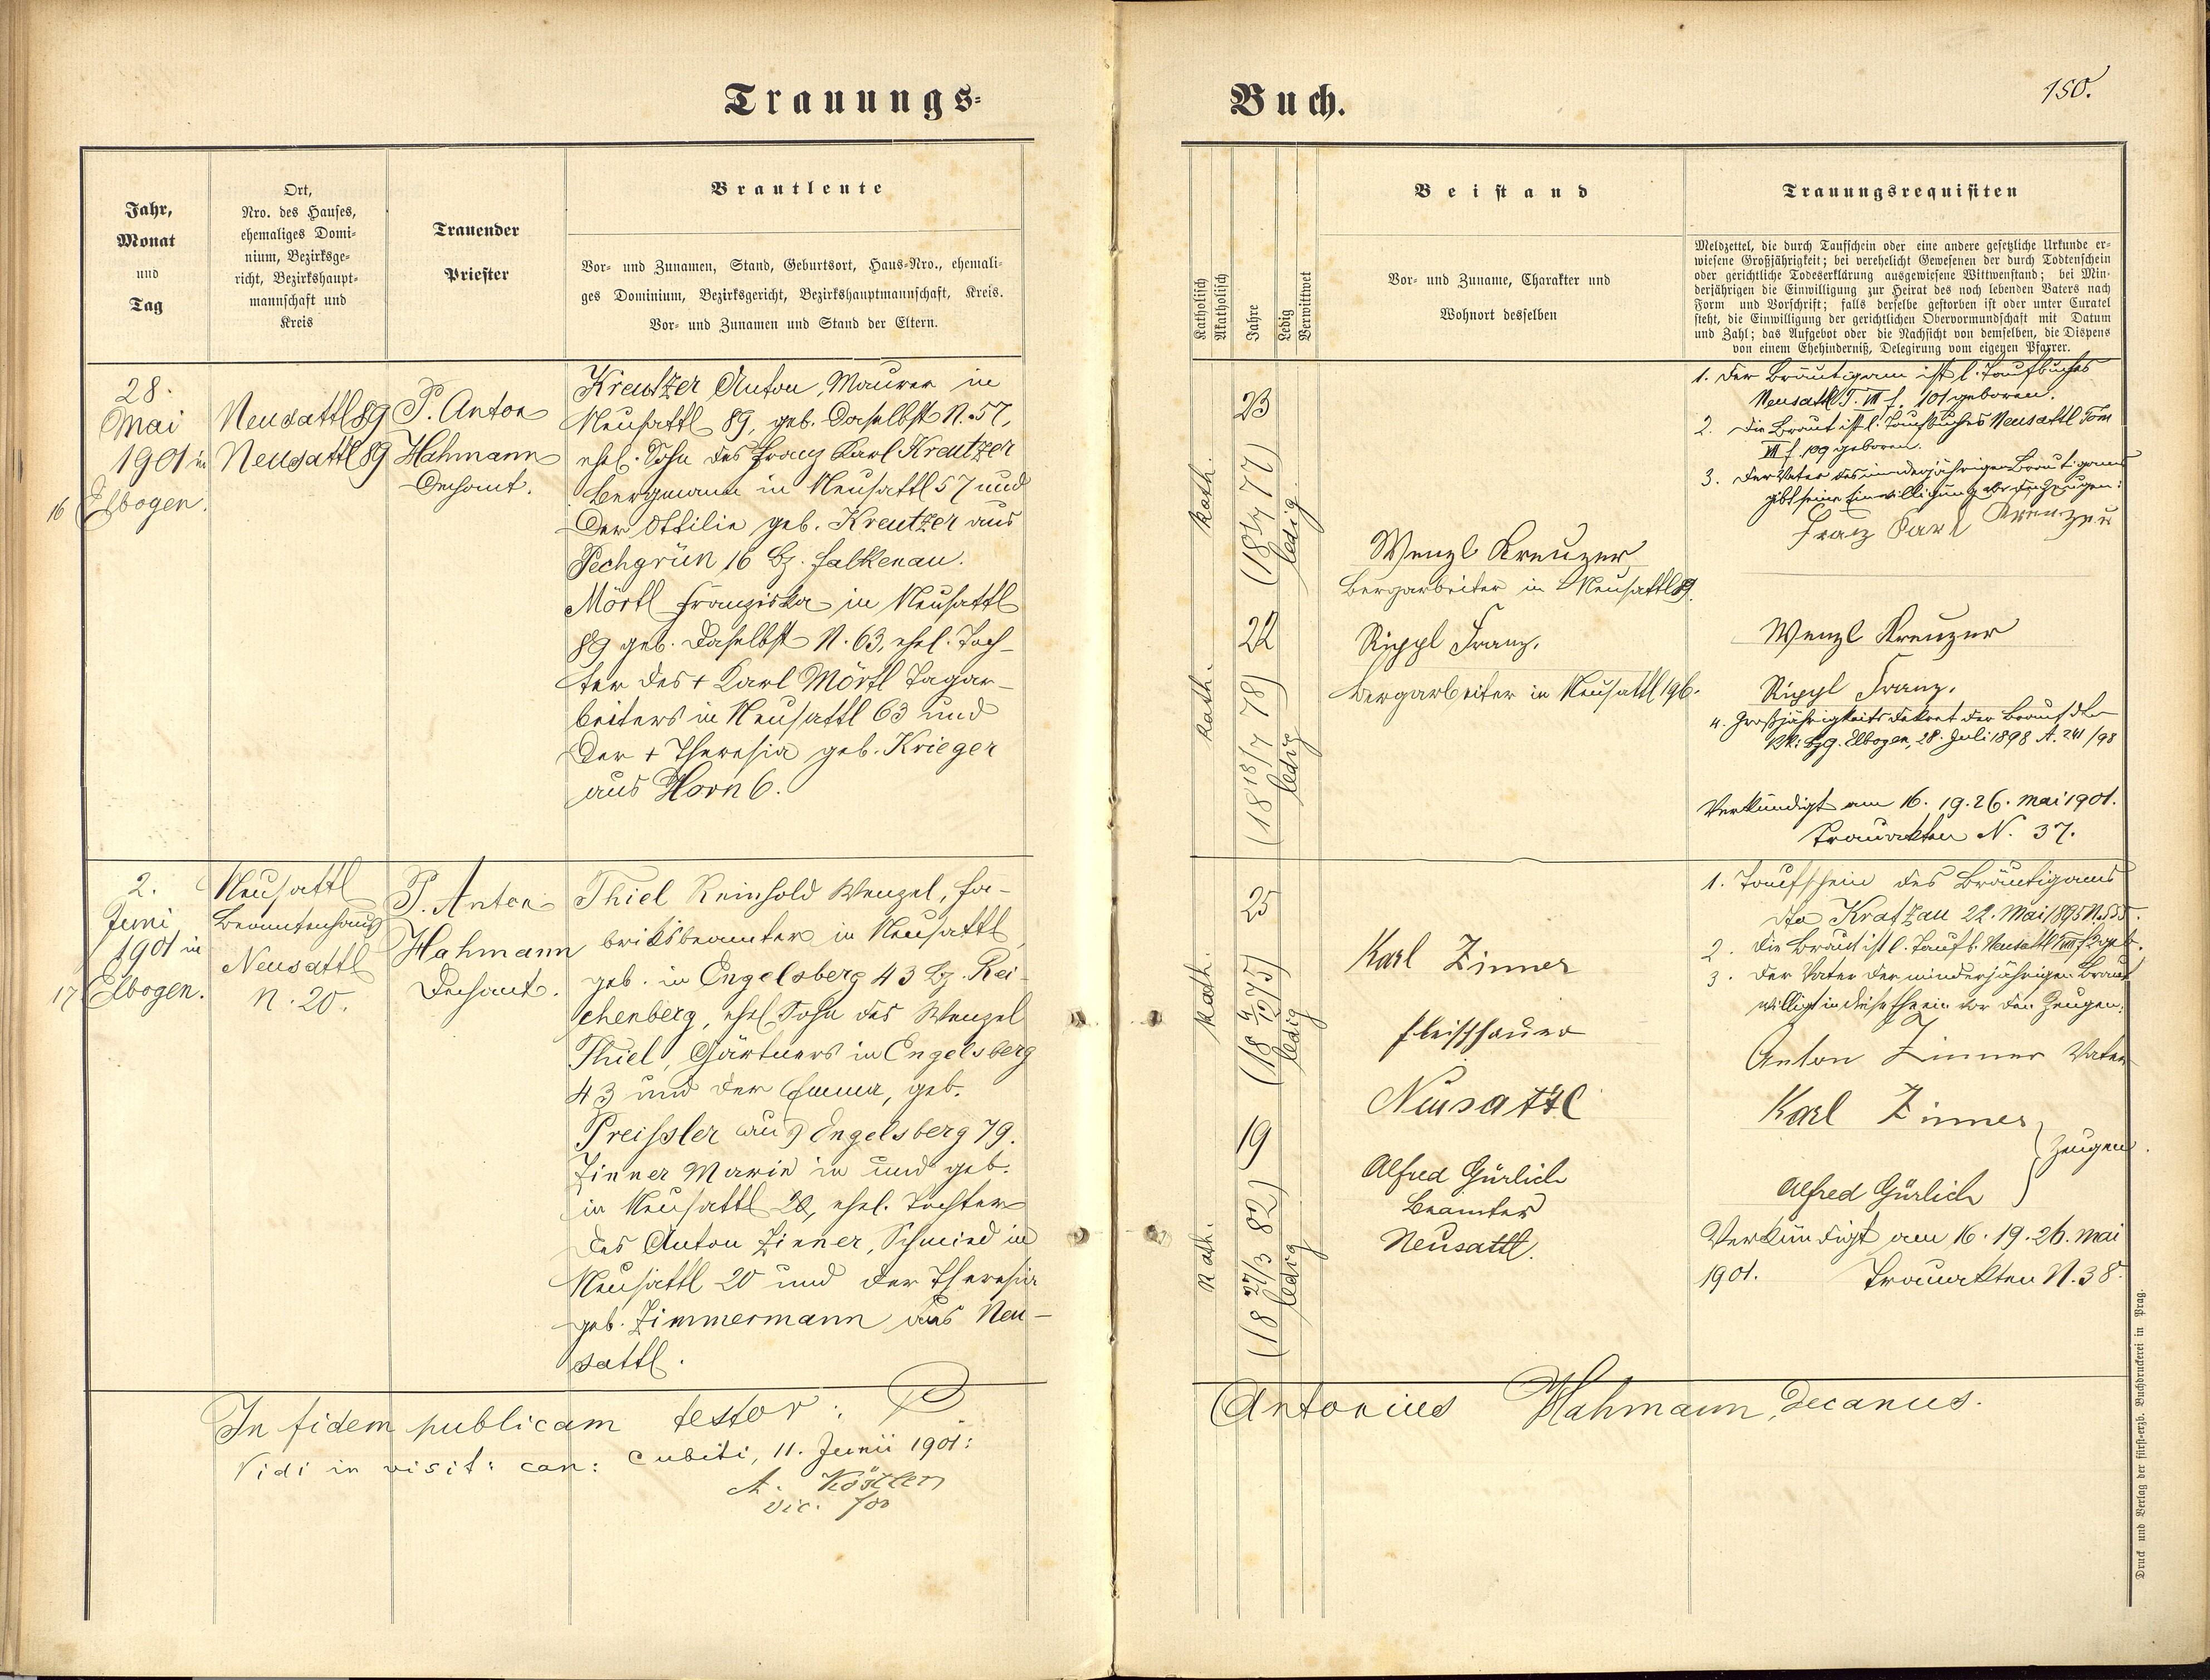 Trauungs-
Buch.
150.
Jahr,
Monat
und
Tag
Ort,
Nro. des Hauses,
ehemaliges Domi-
nium, Bezirksge-
richt, Bezirkshaupt-
mannschaft und
Kreis
Trauender
Priester
Brautleute
Vor- und Zunamen, Stand, Geburtsort, Haus-Nro., ehemali-
ges Dominium, Bezirksgericht, Bezirkshauptmannschaft, Kreis.
Vor- und Zunamen und Stand der Eltern.
Katholisch
Akatholisch
Jahre
Ledig
Verwittwet
Beistand
Vor- und Zuname, Charakter und
Wohnort desselben
Trauungsrequisiten
Meldzettel, die durch Taufschein oder eine andere gesetzliche Urkunde er-
wiesene Großjährigkeit; bei verehelicht Gewesenen der durch Todtenschein
oder gerichtliche Todeserklärung ausgewiesene Wittwenstand; bei Min-
derjährigen die Einwilligung zur Heirat des noch lebenden Vaters nach
Form und Vorschrift; falls derselbe gestorben ist oder unter Curatel
steht, die Einwilligung der gerichtlichen Obervormundschaft mit Datum
und Zahl; das Aufgebot oder die Nachsicht von demselben, die Dispens
von einem Ehehinderniß, Delegirung vom eigenen Pfarrer.
28.
Mai
1901 in
16 Elbogen.
Neusattl 89
Neusattl 89
P. Anton
Hahmann
Dechant.
Kreutzer Anton, Maurer in
Neusattl 89, geb. daselbst N. 57,
ehel. Sohn des Franz Karl Kreutzer
Bergmann in Neusattl 57 und
der Ottilie geb. Kreutzer aus
Pechgrün 16 Bz. Falkenau.
Mörtl Franziska in Neusattl
89 geb. daselbst N. 63, ehel. Toch-
ter des + Karl Mörtl Tagar-
beiters in Neusattl 63 und
der + Theresia geb. Krieger
aus Horn 6.
kath.
23
ledig
kath.
22
(18 18/7 78)
ledig
Wenzl Kreuzer
Bergarbeiter in Neusattl 89.
Rippl Franz.
Bergarbeiter in Neusattl 196.
1. Der Bräutigam ist l. Taufbuches
Neusattl T. VII f. 101 geboren.
2. Die Braut ist l. Taufbuches Neusattl Tom
VII f. 109 geboren.
3. Der Vater des minderjährigen Bräutigams
gibt seine Einwilligung vor den Zeugen:
Franz Karl Kreuzer
Wenzl Kreuzer
Rippl Franz.
4. Großjährigkeitsdekret der Braut dto
kk. Bzg. Elbogen, 28. Juli 1898 A. 241/98
Verkündigt am 16. 19. 26. Mai 1901.
Trauakten N. 37.
2.
Juni
1901 in
17 Elbogen.
Neusattl
Beamtenhaus
Neusattl
N. 20.
P. Anton
Hahmann
Dechant.
Thiel Reinhold Wenzel, Fa-
briksbeamter in Neusattl,
geb. in Engelsberg 43 Bz. Rei-
chenberg, ehel. Sohn des Wenzel
Thiel, Gärtners in Engelsberg
43 und der Emma, geb.
Preissler aus Engelsberg 79.
Zinner Marie in und geb.
in Neusattl 20, ehel. Tochter
des Anton Zinner, Schmied in
Neusattl 20 und der Theresia
geb. Zimmermann aus Neu-
sattl.
kath.
25
ledig
kath.
19
(18 27/3 82)
ledig
Karl Zinner
Fleischhauer
Neusattl
Alfred Gürlich
Beamter
Neusattl.
1. Taufschein des Bräutigams
dto Kratzau 22. Mai 1895
2. Die Braut ist l. Taufb. Neusattl VIII f. 2 geb.
3. Der Vater der minderjährigen Braut
willigt in diese Ehe ein vor den Zeugen:
Anton Zinner Vater
Karl Zinner
Zeugen.
Alfred Gürlich
Verkündigt am 16. 19. 26. Mai
1901. Trauakten N. 38.
In fidem publicam testor: P
Antonius Hahmann, Decanus.
Vidi in visit: can: Cubiti, 11. Junii 1901:
A. Köstler
vic. for
Druck und Verlag der fürst-erzb. Buchdruckerei in Prag.